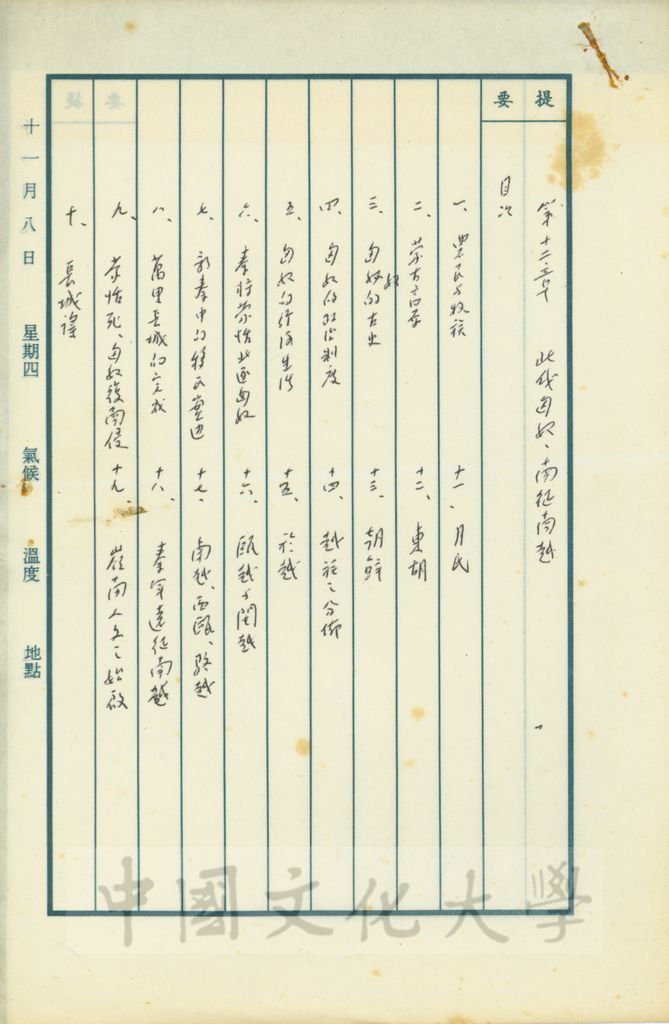 提要
第十二章 北伐匈奴、南征南越
目次
一、農民與牧族
二、蒙古高原
三、匈奴的古史
四、匈奴的政治制度
五、匈奴的經濟生活
六、秦將蒙恬北逐匈奴
七、新秦中的移民實邊
八、萬里長城的完成
九、蒙恬死、匈奴復南侵
十、長城
十一、月氏
十二、東胡
十三、朝鮮
十四、越族之分佈
十五、於越
十六、甌越與閩越
十七、南越、西甌、駱越
十八、秦軍遠征南越
十九、嶺南人文之始啟
十一月八日 星期四 氣候 溫度 地點
中國文化大學